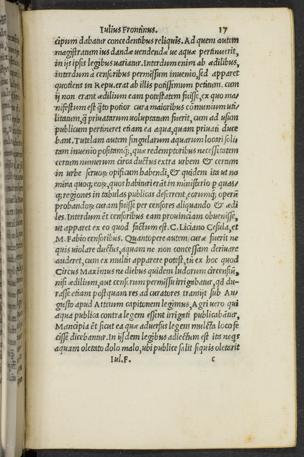 Iulius Frontinus. 17
cipum dabatur concedentibus reliquis. Ad quem autem
magistratum ius dandæ uendendæ ue aquæ pertinuerit,
in ijs ipsis legibus uariatur. Interdum enim ab ædilibus,
interdum à censoribus permissum inuenio, sed apparet
quotiens in Repu. erāt ab illis potissimum petitam. cum
ij non erant ædilium eam potestatem fuisse, ex quo ma
nifestum est q̄to potior cura maioribus cōmunium uti
litatum, q̄ priuatarum uoluptatum fuerit, cum ad usum
publicum pertineret etiam ea aqua, quam priuati duce
bant. Tutelam autem singularum aquarum locari soli
tam inuenio positamq́;, quæ redemptoribus necessitatem
certum numerum circa ductus extra urbem & certum
in urbe seruorū opificum habendi, & quidem ita ut no
mina quoq; eorū, quos habituri erāt in ministerio p quas
q; regiones in tabulas publicas deferrent, eorumq́; operū
probandorū curam fuisse per censores aliquando & ædi
les. Interdum et censoribus eam prouinciam obuenisse,
ut apparet ex eo quod factum est. C. Liciano Cesula, et
M. Fabio censoribus. Quantopere autem curæ fuerit ne
quis uiolare ductus, aquam ue non concessam deriuare
auderet, cum ex multis apparere potest, tū ex hoc quod
Circus Maximus ne diebus quidem ludorum circensiū,
nisi ædilium, aut censorum permissu irrigabatur, qd du-
rasse etiam postquam res ad curatores transijt sub Au
gusto apud Attium capitonem legimus. Agri uero qui
aqua publica contra legem essent irrigati publicabātur,
Mancipia ēt si cut ea quæ aduersus legem mulcta loco fe
cisse dicebantur. In ijsdem legibus adiectum est ita neqs
aquam oletato dolo malo, ubi publice salit siquis oletarit
Iul. F. c